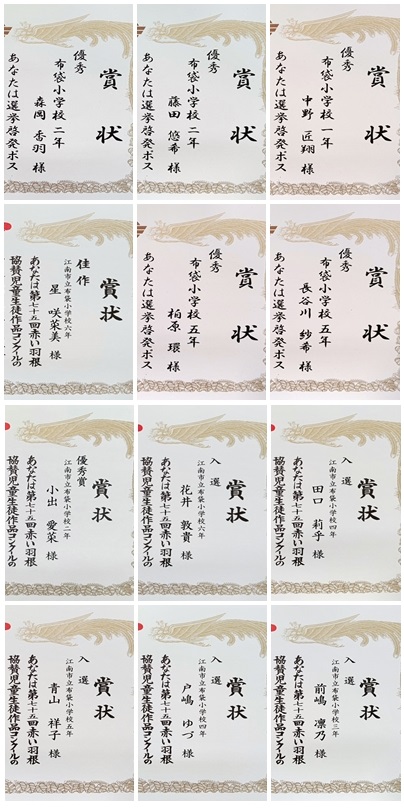 賞状
優秀
布袋小学校二年
森岡 杏羽 様
あなたは選挙啓発ポス
賞状
優秀
布袋小学校二年
藤田 悠希 様
あなたは選挙啓発ポス
賞状
優秀
布袋小学校一年
中野 匠翔 様
あなたは選挙啓発ポス
賞状
佳作
江南市立布袋小学校六年
星 咲菜美 様
あなたは第七十五回赤い羽根
協賛児童生徒作品コンクールの
賞状
優秀
布袋小学校五年
柏原 環 様
あなたは選挙啓発ポス
賞状
優秀
布袋小学校五年
長谷川 紗希 様
あなたは選挙啓発ポス
賞状
優秀賞
江南市立布袋小学校二年
小出 愛菜 様
あなたは第七十五回赤い羽根
協賛児童生徒作品コンクールの
賞状
入選
江南市立布袋小学校六年
花井 敦貴 様
あなたは第七十五回赤い羽根
協賛児童生徒作品コンクールの
賞状
入選
江南市立布袋小学校四年
田口 莉乎 様
あなたは第七十五回赤い羽根
協賛児童生徒作品コンクールの
賞状
入選
江南市立布袋小学校五年
青山 祥子 様
あなたは第七十五回赤い羽根
協賛児童生徒作品コンクールの
賞状
入選
江南市立布袋小学校四年
戸嶋 ゆづ 様
あなたは第七十五回赤い羽根
協賛児童生徒作品コンクールの
賞状
入選
江南市立布袋小学校三年
前嶋 凛乃 様
あなたは第七十五回赤い羽根
協賛児童生徒作品コンクールの